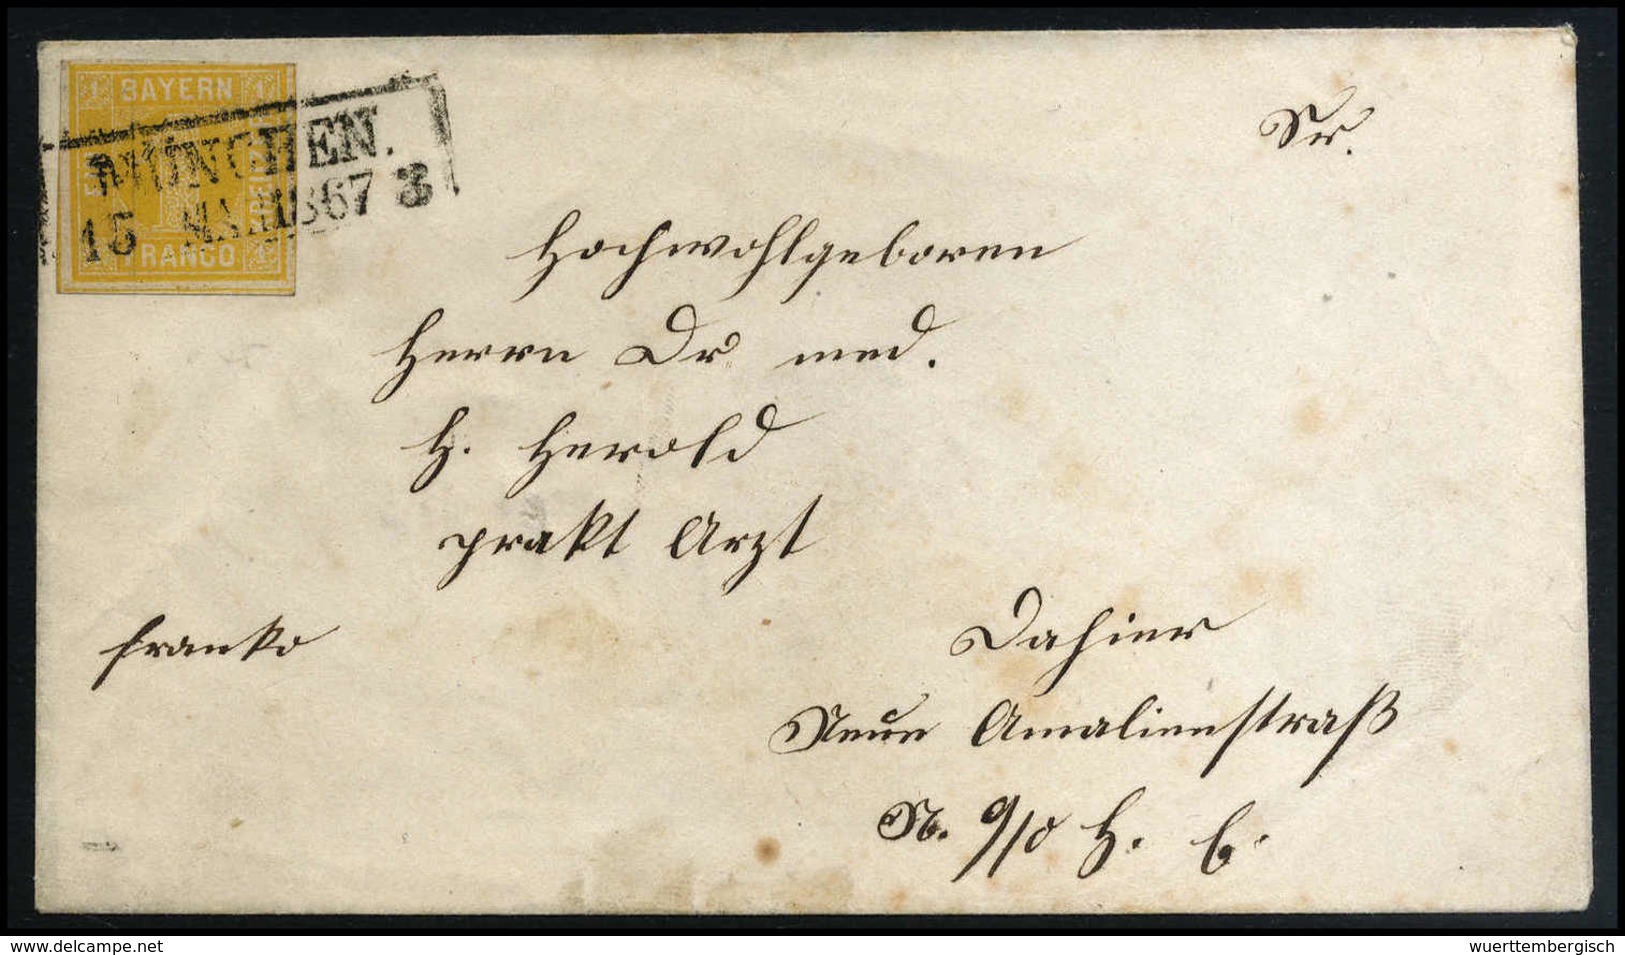 BAYERN
1 1
EIN KREUZER
FRANCO
MÜNCHEN.
15 MAI 1867 3
Sr.
Hochwohlgeboren
Herrn Dr med.
H. Herold
prakt Arzt
franko
Dahier
Neue Amalienstraß
N. 9/0 H. G.
delcampe.net
wuerttembergisch